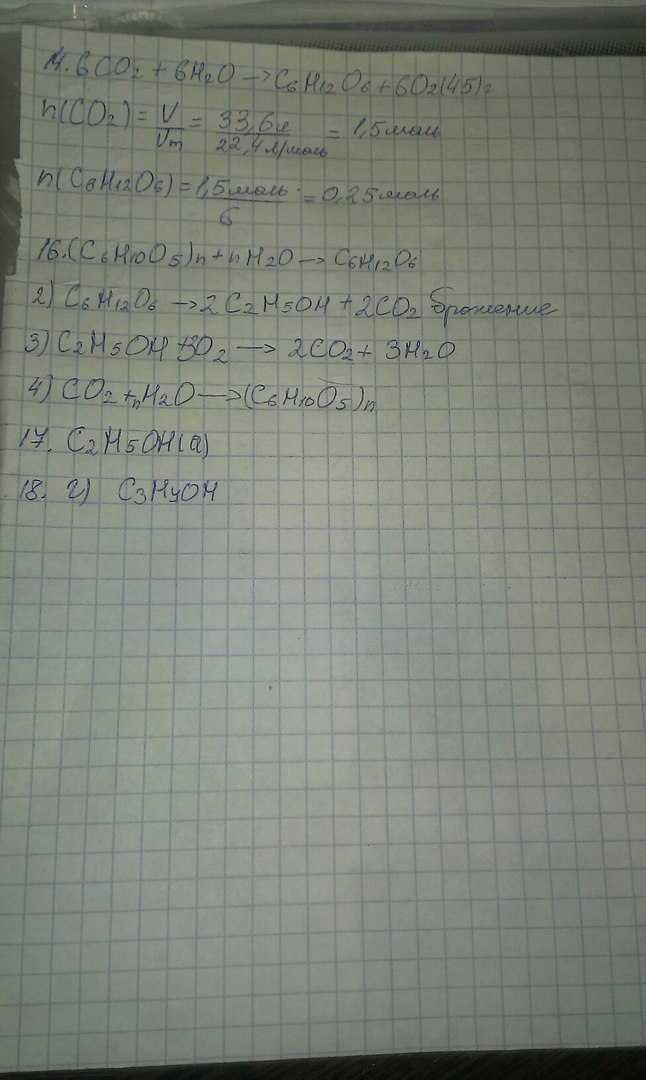 14. 6CO2 + 6H2O → C6H12O6 + 6O2 (45)г
n(CO2) = V/Vm = 33,6л/22,4 л/моль = 1,5моль
n(C6H12O6) = 1,5моль/6 = 0,25моль
16. (C6H10O5)n + nH2O → C6H12O6
2) C6H12O6 → 2C2H5OH + 2CO2 брожение
3) C2H5OH + 3O2 → 2CO2 + 3H2O
4) CO2 + nH2O → (C6H10O5)n
17. C2H5OH(а)
18. г) C3H7OH